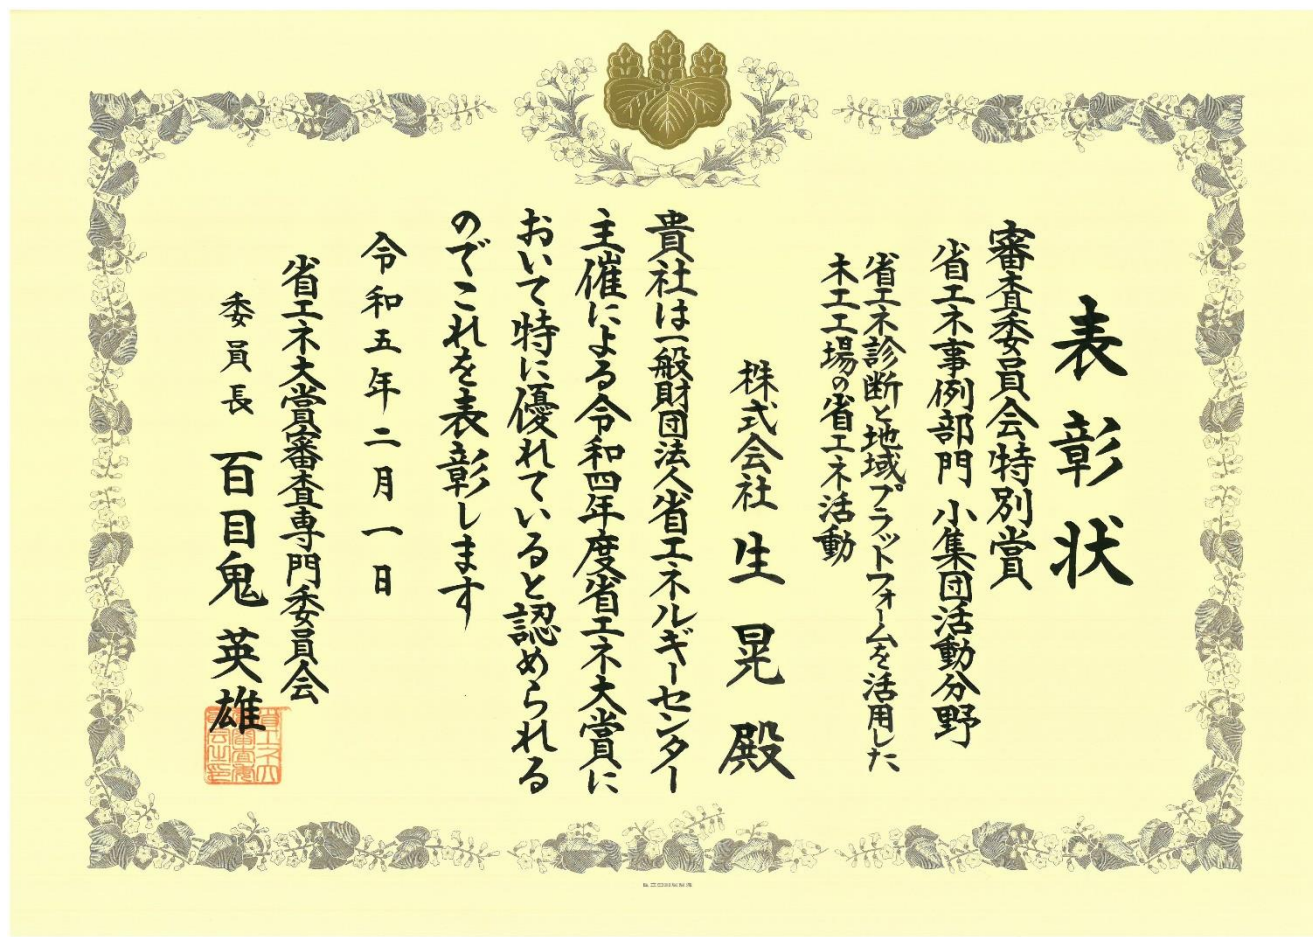 表彰状
審査委員会特別賞
省エネ事例部門 小集団活動分野
省エネ診断と地域プラットフォームを活用した
木工工場の省エネ活動
株式会社 生晃 殿
貴社は一般財団法人省エネルギーセンター
主催による令和四年度省エネ大賞に
おいて特に優れていると認められる
のでこれを表彰します
令和五年二月一日
省エネ大賞審査専門委員会
委員長 百目鬼 英雄